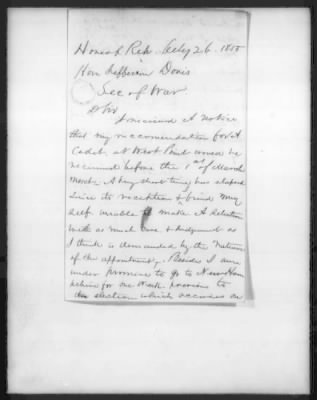 House of Reps Feby 26. 1855
Hon Jefferson Davis
Sec of War
D Sir
I received a notice
that my recommendation for a
Cadet at West Point would be
received before the 1st of March
next. A very short time has elapsed
since its reception & I find my
self unable to make a selection
with as much care & judgment as
I think is demanded by the nature
of the appointment. Besides I am
under promise to go to New Ham
pshire for one Week previous to
the election which occurs on